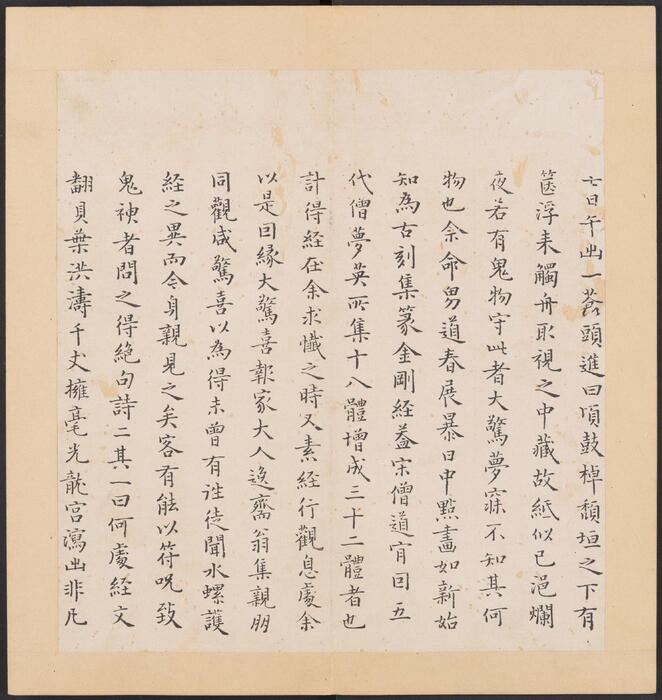 七日午出一蒼頭進曰頃鼓棹頹垣之下有
篋浮来觸舟取視之中藏故紙似已浥爛
夜若有鬼物守此者大驚夢寐不知其何
物也余命男道春展暴日中點畫如新始
知為古刻集篆金剛経葢宋僧道肯囙五
代僧夢英所集十八體增成三十二體者也
計得経在余求懺之時又素経行觀息處余
以是囙緣大驚喜報家大人逸齋翁集親朋
同觀咸驚喜以為得未曾有詳徒聞水螺護
経之異而今身親見之矣客有能以符呪致
鬼神者問之得絶句詩二其一曰何處経文
翻貝葉洪濤千丈擁毫光龍宮瀉出非凡